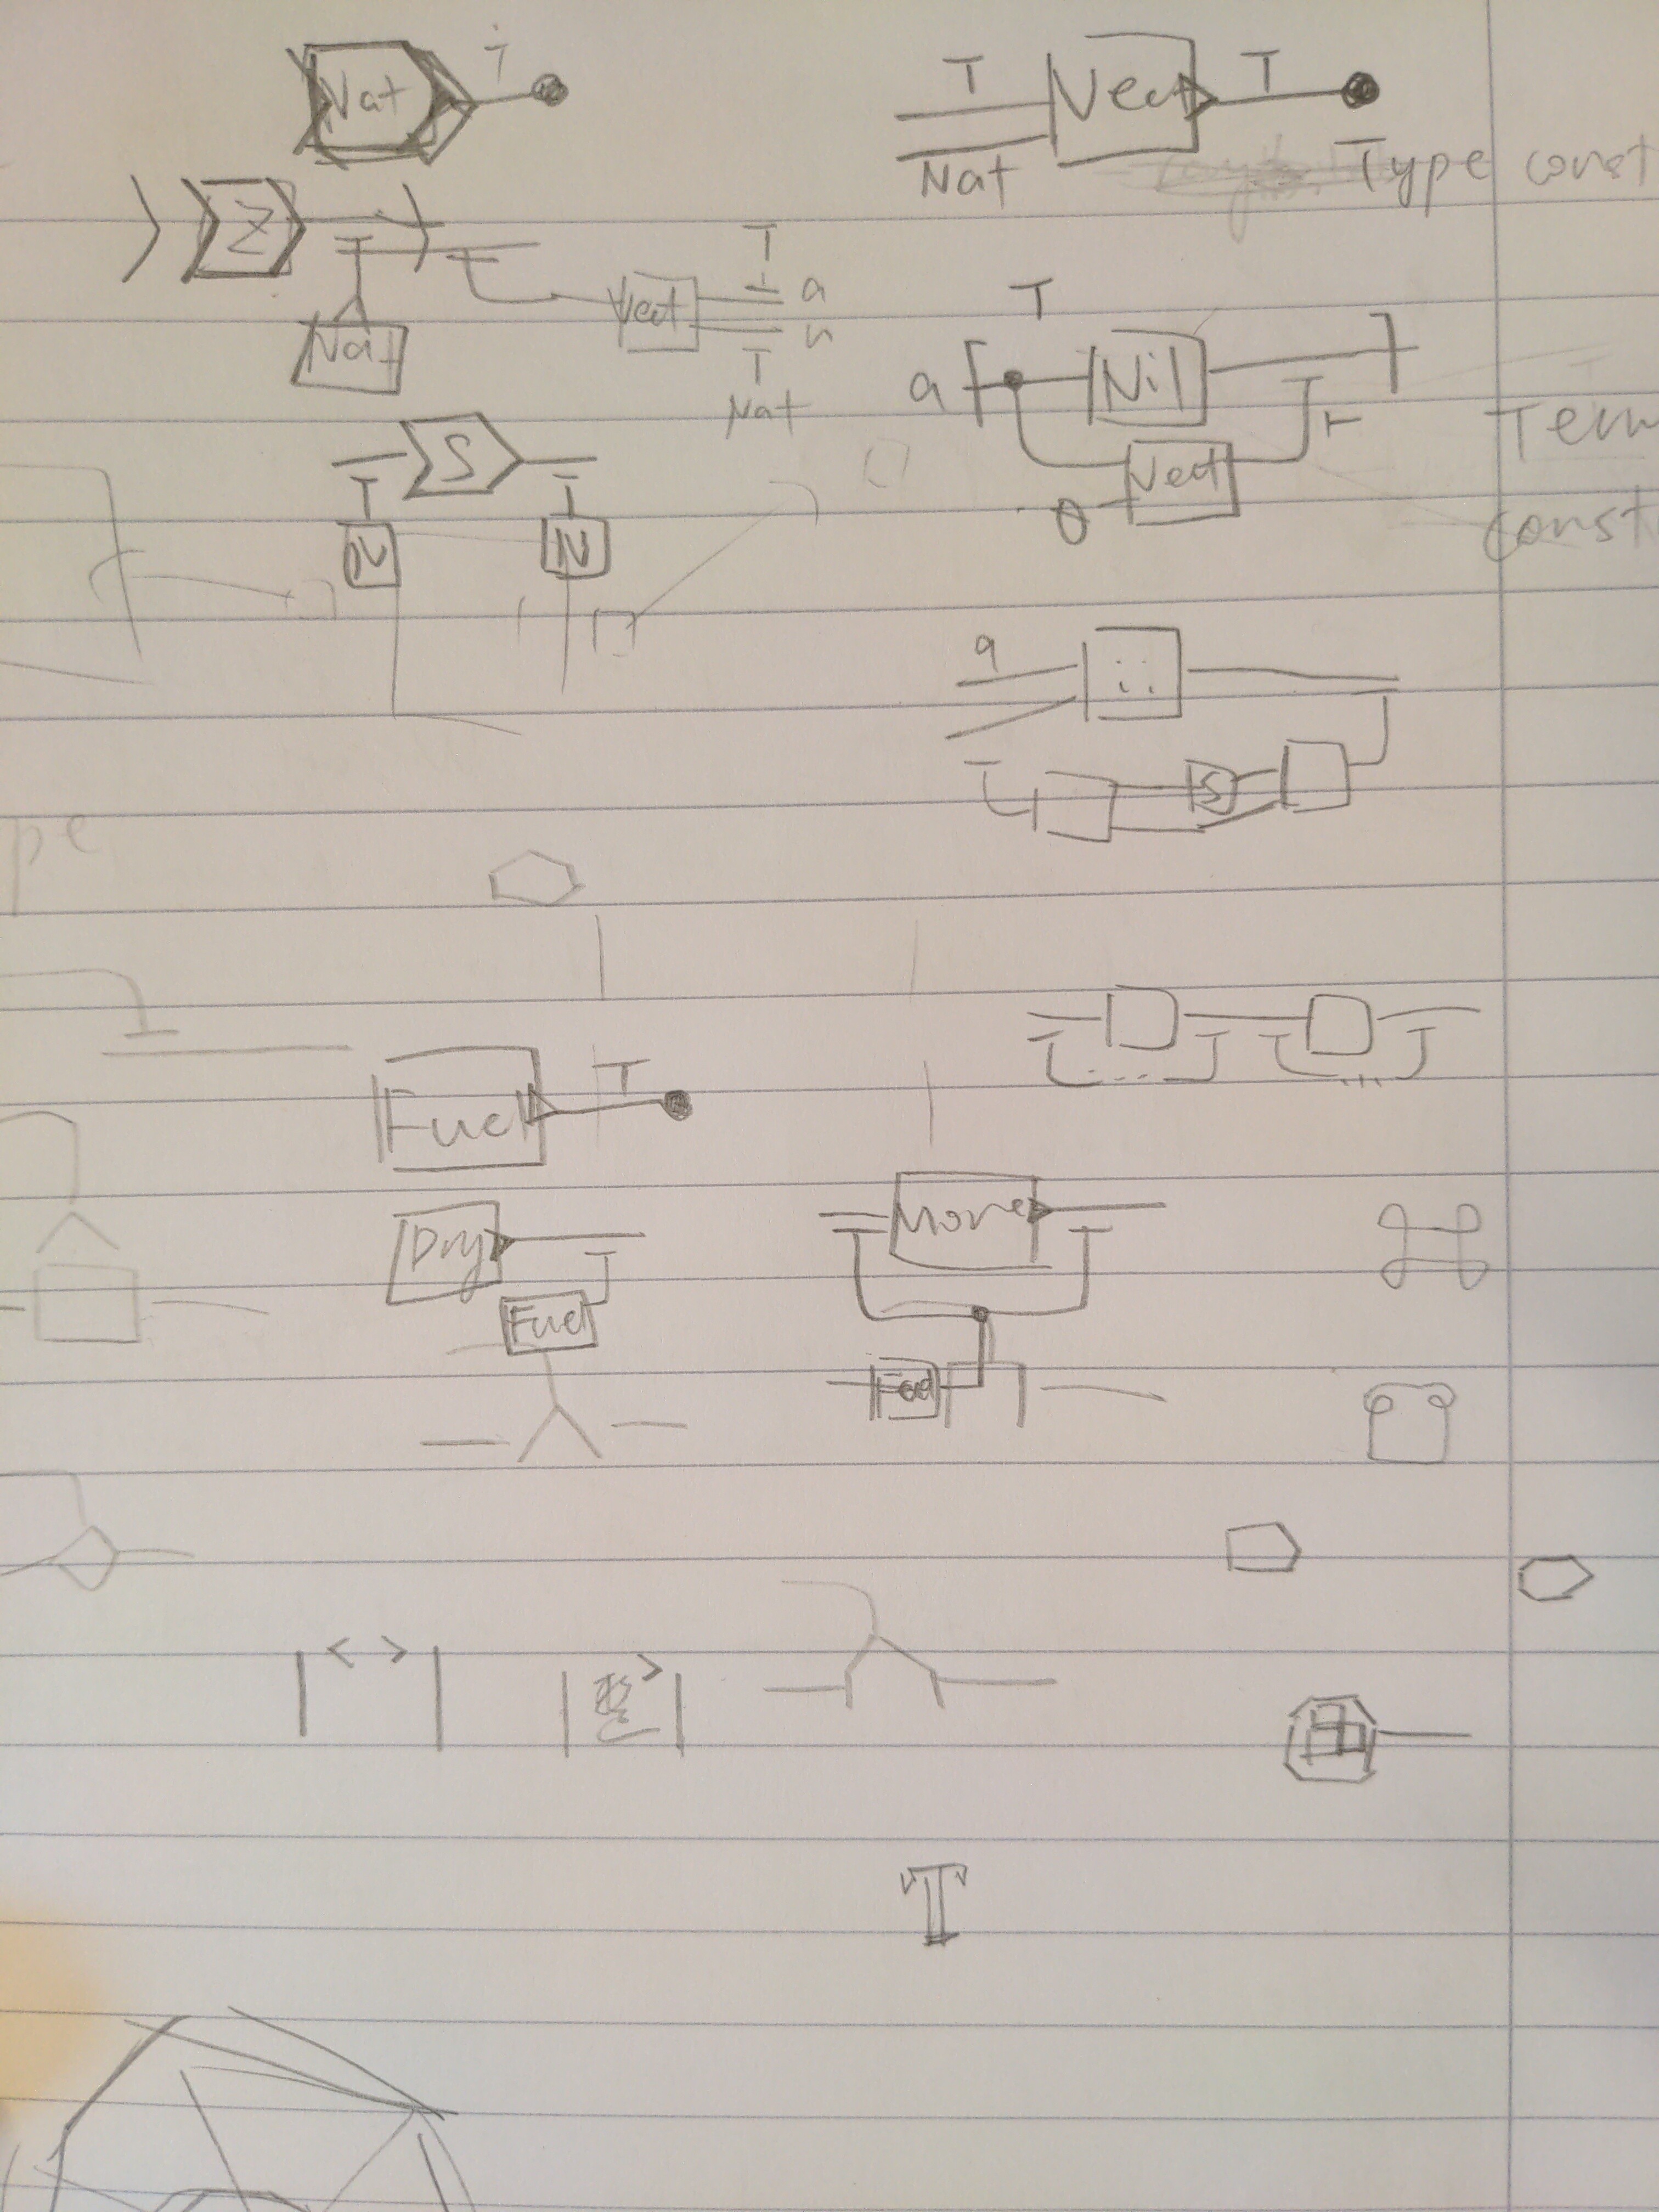 Nat T
T Vect T
Nat
Type const
Z
Nat
Vect
T
a
n
T
Nat
T
a Nil
T
Vect
0
Term
const
S
T T
N N
a
::
T
S
pe
Fuel T
Dry
T
Fuel
Move
T T
Fuel
T T T T
...
...
< >
型 >
T